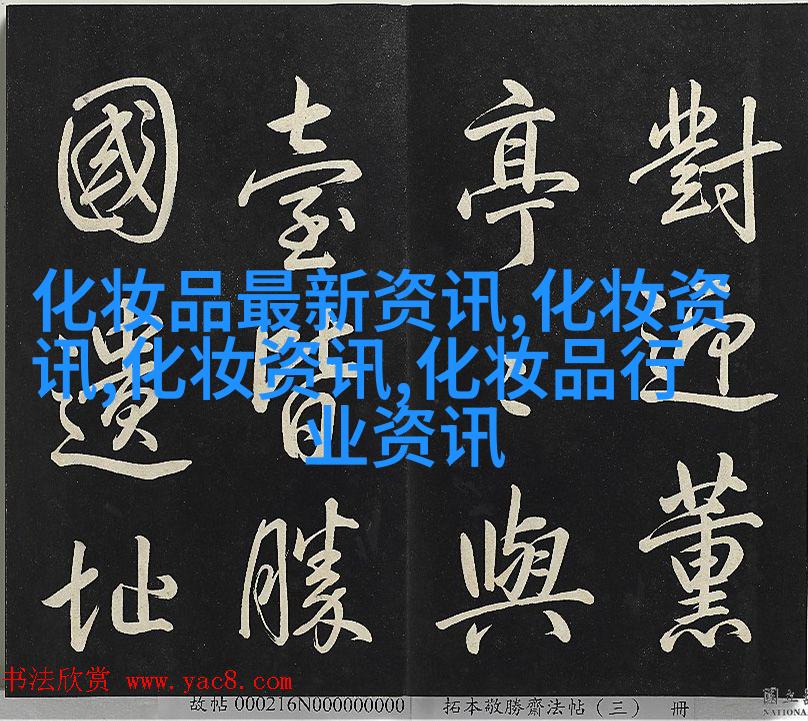 對迎薰
亭與
臺皆勝
國遺址
化妆品最新资讯,化妆资
讯,化妆资讯,化妆品行
业资讯
书法欣赏 www.yac8.com
故帖 000216N000000000 拓本敬勝齋法帖（三） 册
國立
NATIONA